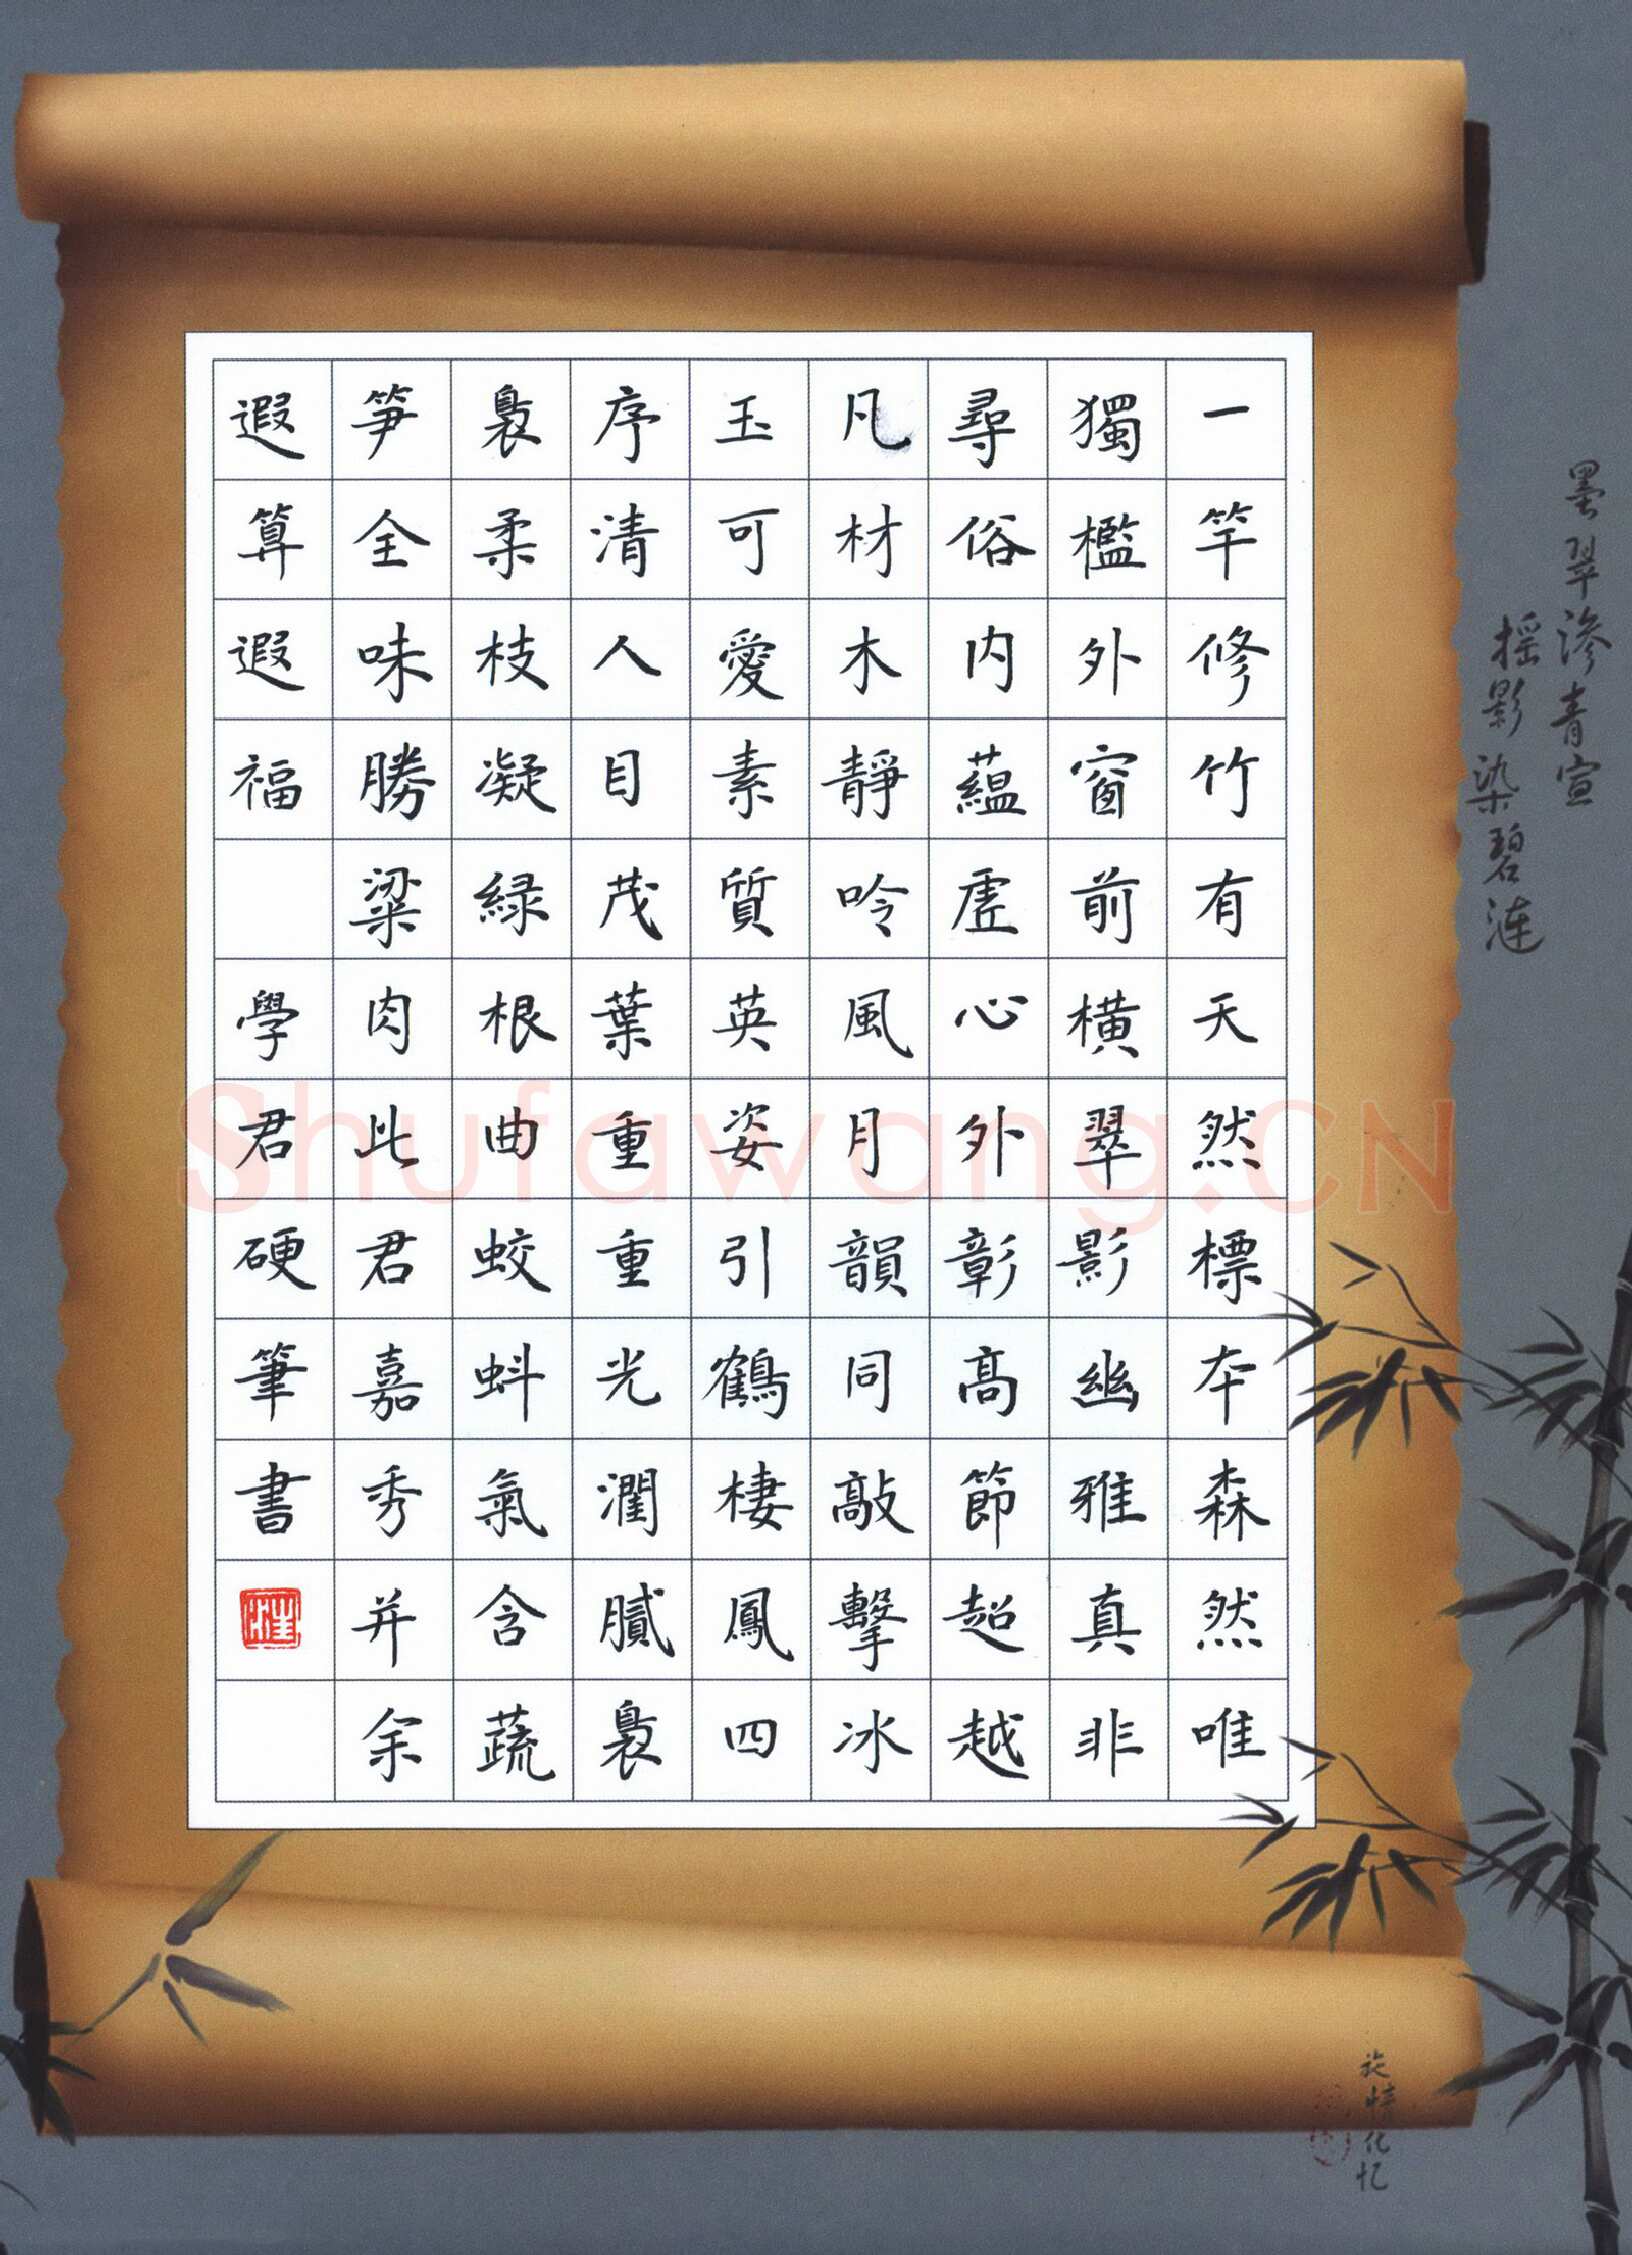 一竿修竹有天然標本森然唯
獨檻外窗前橫翠影幽雅真非
尋俗内蘊虛心外彰高節超越
凡材木靜吟風月韻同敲擊冰
玉可愛素質英姿引鶴棲鳳四
序清人目茂葉重重光潤膩裊
裊柔枝凝綠根曲蛟蚪氣含蔬
笋全味勝粱肉此君嘉秀并余
遐算遐福
學君硬筆書
墨翠滲青宣
摇影染碧漣
Shufawang.CN